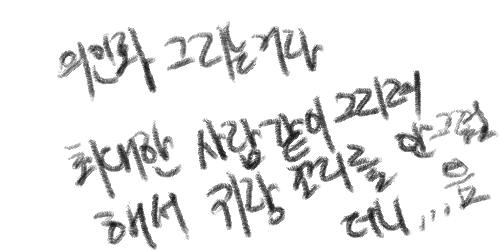 의인화 그리는거라
최대한 사람같이 그리려
해서 귀랑 꼬리를 안그렸
더니... 음